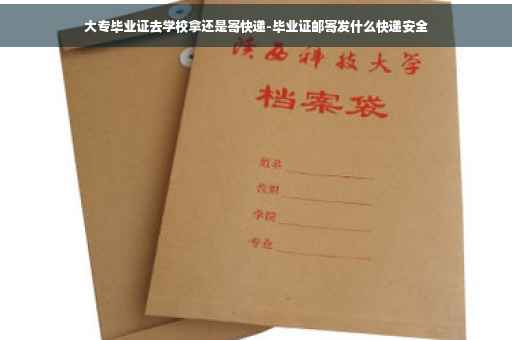 大专毕业证去学校拿还是寄快递-毕业证邮寄发什么快递安全
陕西科技大学
档案袋
姓名
学院
专业